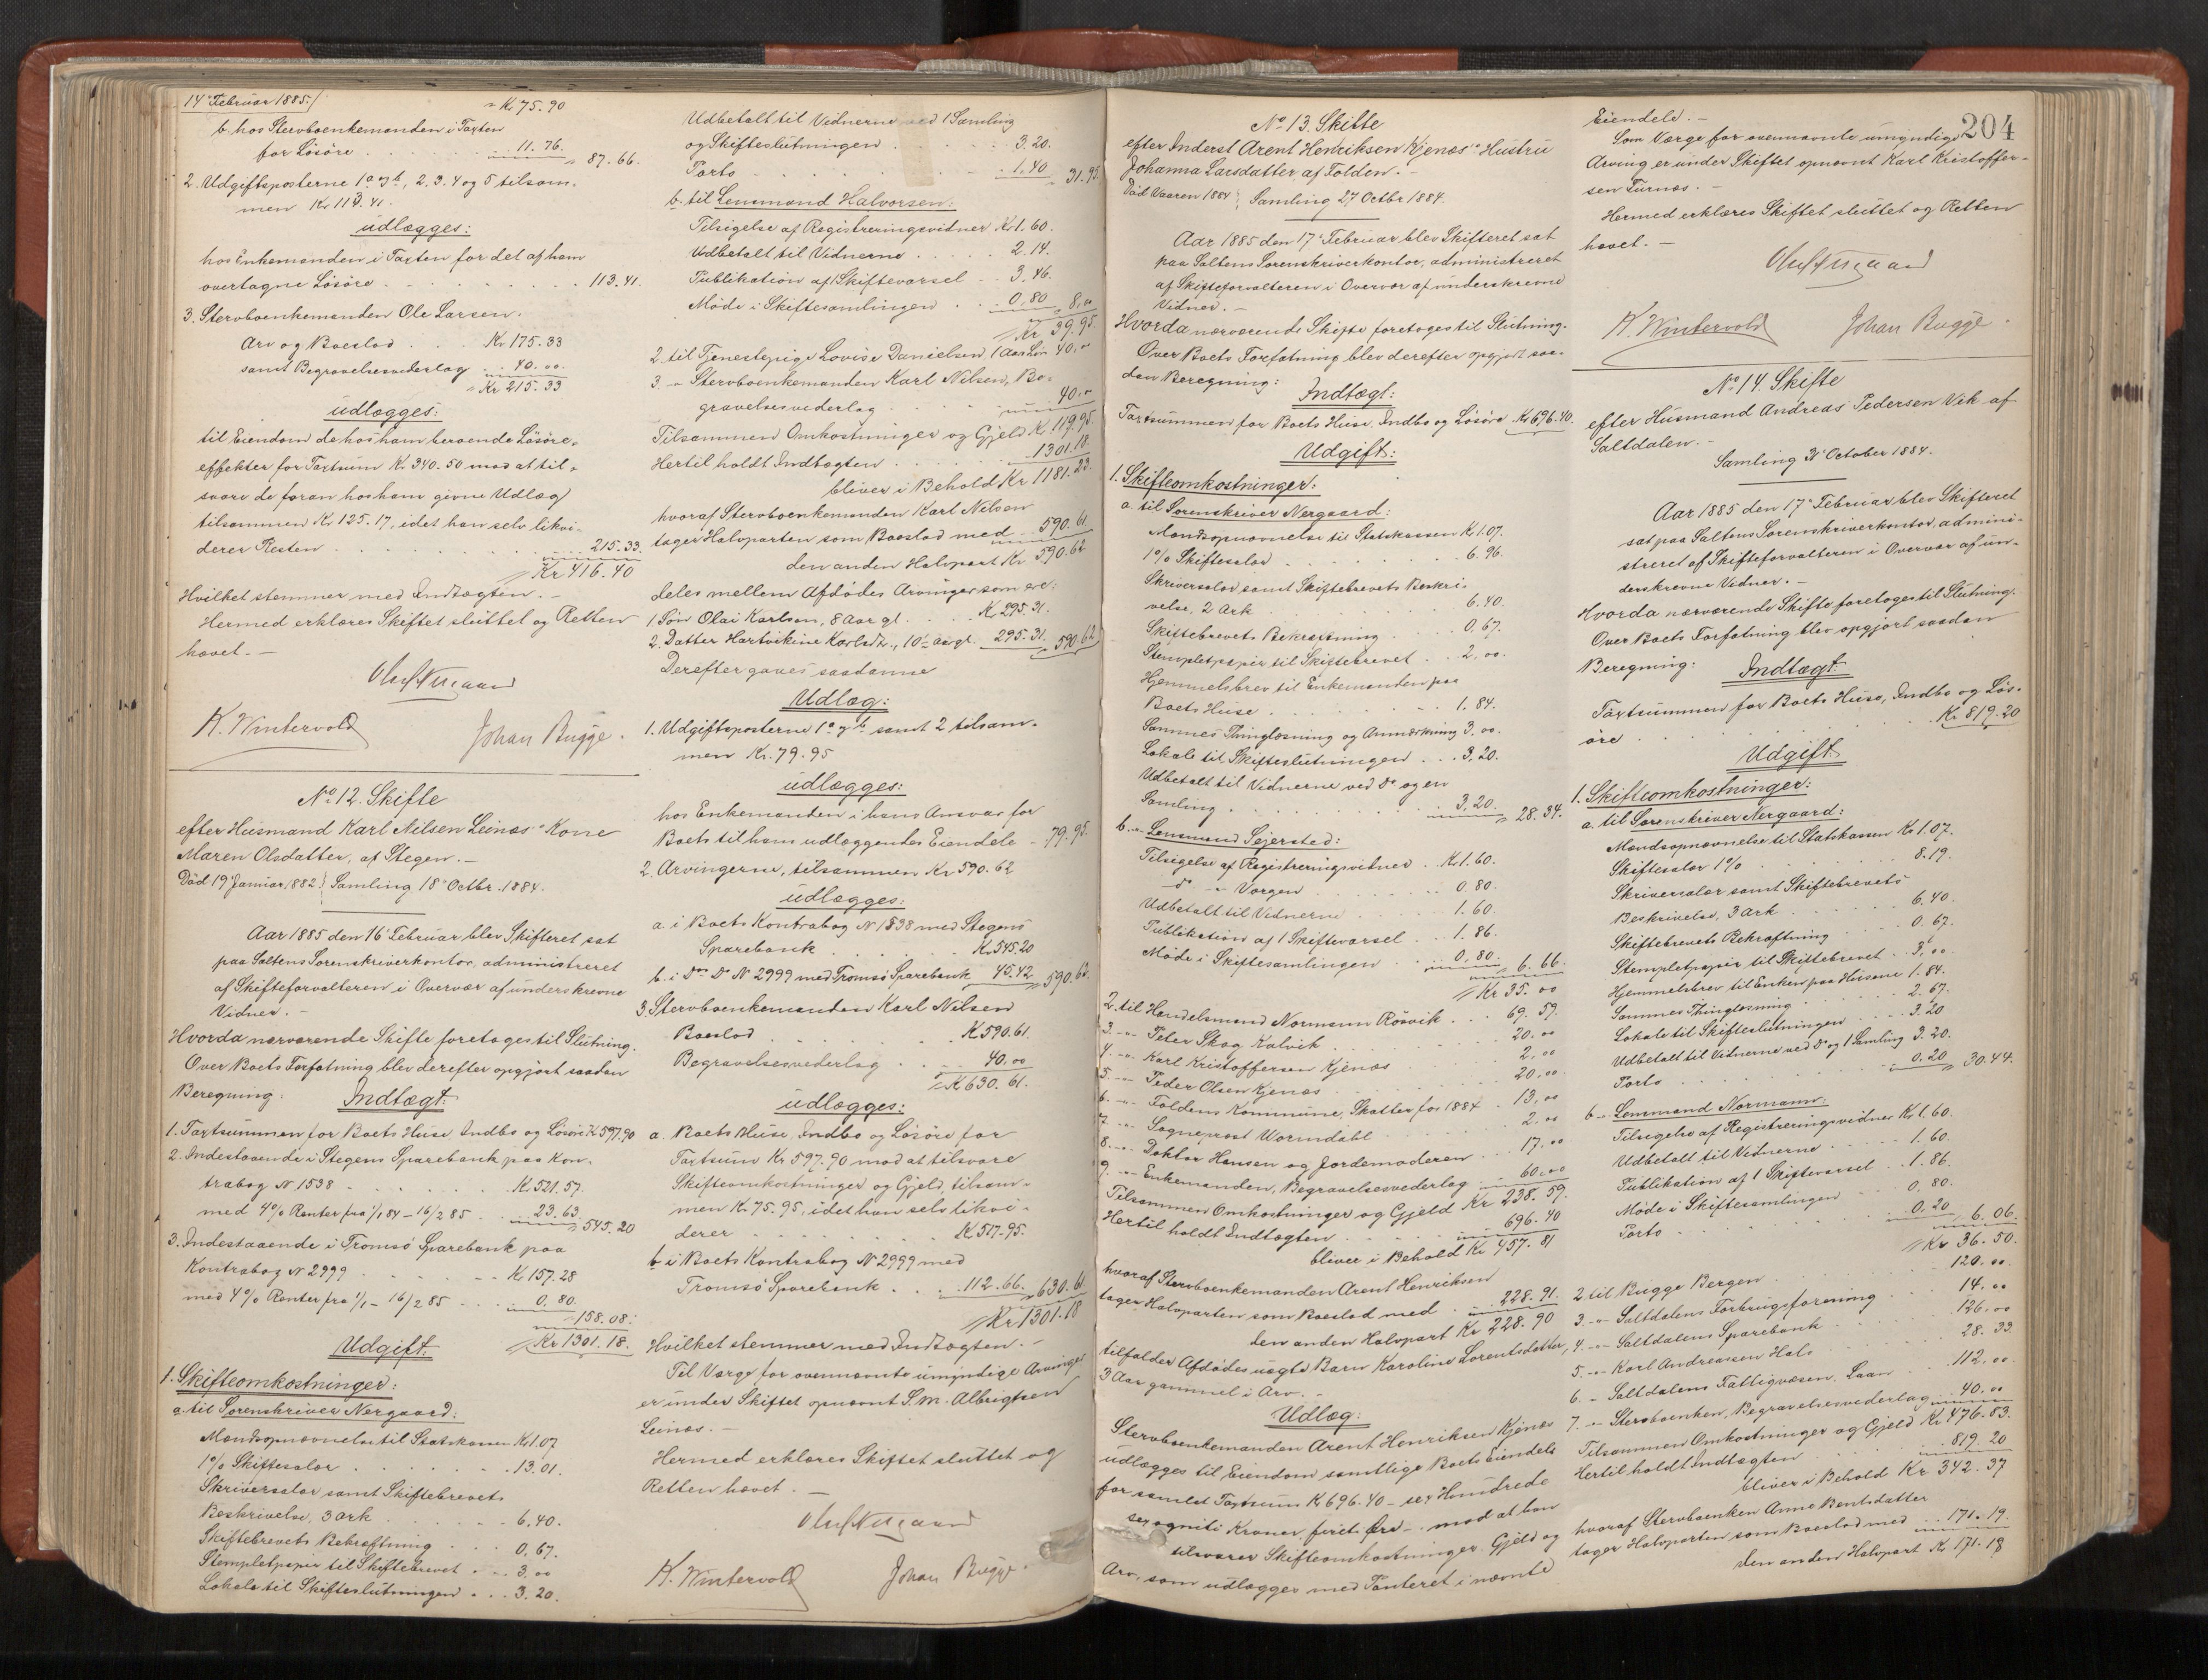 14 Februar 1885./
" Kr 75.90
b. hos Stervboenkemanden i Taxten
for Løsøre . . . 11.76.
" 87.66.
2. Udgiftsposterne 1a og b, 2. 3. 4 og 5 tilsam-
men Kr 113.41.
udlægges:
hos Enkemanden i Taxten for det af ham
overtagne Løsøre . . . 113.41.
3. Stervboenkemanden Ole Larsen.
Arv og Boeslod . . . Kr 175.33
samt Begravelsesvederlag . . 40.00.
Kr 215.33
udlægges:
til Eiendom de hos ham beroende Løsøre-
effekter for Taxtsum Kr 340.50 mod at til-
svare de foran hos ham givne Udlæg
tilsammen Kr 125.17, idet han selv likvi-
derer Resten . . . 215.33.
Kr 416.40
Hvilket stemmer med Indtægten. —
Hermed erklæres Skiftet sluttet og Retten
hævet. —
Oluf Nergaard
K. Wintervold Johan Bugge.
No 12. Skifte
efter Husmand Karl Nilsen Leinæs' Kone
Maren Olsdatter, af Stegen. —
Død 19 Januar 1882. Samling 18 Octbr. 1884.
Aar 1885 den 16 Februar blev Skifteret sat
paa Saltens Sorenskriverkontor, administreret
af Skifteforvalteren i Overvær af underskrevne
Vidner. —
Hvorda nærværende Skifte foretoges til Slutning.
Over Boets Forfatning blev derefter opgjort saadan
Beregning: Indtægt:
1. Taxtsummen for Boets Huse Indbo og Løsøre Kr 597.90
2. Indestaaende i Stegens Sparebank paa Kon-
trabog N 1538 . . . Kr 521.57.
med 4% Renter fra 1/1 84 — 16/2 85 . . 23.63.
" 545.20
3. Indestaaende i Tromsø Sparebank paa
Kontrabog N 2999 . . . Kr 157.28
med 4% Renter fra 1/1 — 16/2 85 . . 0.80.
158.08.
Kr 1301.18.
Udgift
1. Skifteomkostninger:
a. til Sorenskriver Nergaard:
Mandsopnævnelse til Statskassen Kr 1.07
1% Skiftesalær . . . 13.01.
Skriversalær samt Skiftebrevets
Beskrivelse, 3 Ark . . . 6.40.
Skiftebrevets Bekræftning . . 0.67.
Stempletpapir til Skiftebrevet . . 3.00
Lokale til Skifteslutningen . . . 3.20.
Udbetalt til Vidnerne ved 1 Samling
og Skifteslutningen . . . 3.20.
Porto . . . 1.40
" 31.95
b. til Lensmand Halvorsen:
Tilsigelse af Registreringsvidner Kr 1.60.
Udbetalt til Vidnerne . . . 2.14.
Publikation af 1 Skiftevarsel . 3.46.
Møde i Skiftesamlingen . . . 0.80
" 8.00
Kr 39.95.
2. til Tjenestepige Lovise Danielsen, 1 Aars Løn 40.00
3. " Stervboenkemanden Karl Nilsen, Be-
gravelsesvederlag . . . 40.00
Tilsammen Omkostninger og Gjeld Kr 119.95
Hertil holdt Indtægten . . . 1301.18.
bliver i Behold Kr 1181.23.
hvoraf Stervboenkemanden Karl Nilsen
tager Halvparten som Boeslod med . . 590.61
den anden Halvpart Kr 590.62
deles mellem Afdødes Arvinger som ere:
1. Søn Olai Karlsen, 8 Aar gl. . . Kr 295.31.
2. Datter Hartvikine Karlsdtr., 10½ Aar gl. 295.31. 590.62
Derefter gaves saadanne
Udlæg:
1. Udgiftsposterne 1a og b samt 2 tilsam-
men Kr. 79.95
udlægges:
hos Enkemanden i hans Ansvar for
Boets til ham udlæggendes Eiendele - 79.95.
2. Arvingerne, tilsammen Kr 590.62
udlægges:
a. i Boets Kontrabog N 1538 med Stegens
Sparebank . . . Kr 545.20
b. i Do Do N 2999 med Tromsø Sparebank 45.42 590.62.
3. Stervboenkemanden Karl Nilsen
Boeslod . . . Kr 590.61.
Begravelsesvederlag . . . 40.00
Kr 630.61.
udlægges:
a. Boets Huse, Indbo og Løsøre for
Taxtsum Kr 597.90 mod at tilsvare
Skifteomkostninger og Gjeld, tilsam-
men Kr. 75.95, idet han selv likvi-
derer . . . Kr 517.95.
b. i Boets Kontrabog N 2999 med
Tromsø Sparebank . . . 112.66. " 630.61
Kr 1301.18
Hvilket stemmer med Indtægten. —
Til Værge for ovennævnte umyndige Arvinger
er under Skiftet opnævnt S. M. Albrigtsen
Leinæs. —
Hermed erklæres Skiftet sluttet og
Retten hævet. —
Oluf Nergaard
K. Wintervold Johan Bugge.
No 13. Skifte
efter Inderst Arent Henriksen Kjenæs' Hustru
Johanna Larsdatter af Folden. —
Død Vaaren 1884. Samling 27 Octbr 1884.
Aar 1885 den 17 Februar blev Skifteret sat
paa Saltens Sorenskriverkontor, administreret
af Skifteforvalteren i Overvær af underskrevne
Vidner. —
Hvorda nærværende Skifte foretoges til Slutning.
Over Boets Forfatning blev derefter opgjort saa-
dan Beregning:
Indtægt:
Taxtsummen for Boets Huse, Indbo og Løsøre Kr 696.40.
Udgift:
1. Skifteomkostninger:
a. til Sorenskriver Nergaard:
Mandsopnævnelse til Statskassen Kr 1.07.
1% Skiftesalær . . . 6.96.
Skriversalær samt Skiftebrevets Beskri-
velse, 2 Ark . . . 6.40.
Skiftebrevets Bekræftning . . . 0.67.
Stempletpapir til Skiftebrevet . . 2.00.
Hjemmelsbrev til Enkemanden paa
Boets Huse . . . 1.84.
Sammes Thinglæsning og Anmærkning 3.00.
Lokale til Skifteslutningen . . . 3.20.
Udbetalt til Vidnerne ved Do og en
Samling . . . 3.20.
" 28.34.
b. " Lensmand Sejersted:
Tilsigelse af Registreringsvidner . Kr 1.60.
Do " Værgen . . . 0.80.
Udbetalt til Vidnerne . . . 1.60.
Publikation af 1 Skiftevarsel . . 1.86.
Møde i Skiftesamlingen . . . 0.80.
" 6.66.
Kr 35.00
2. til Handelsmand Normann Røsvik . . 69.59.
3. " Peter Skog Kalvik . . . 20.00
4. " Karl Kristoffersen Kjenæs . . . 2.00
5. " Peder Olsen Kjenæs . . . 20.00
6. " Foldens Kommune, Skatter for 1884 . 13.00
7. " Sogneprest Wormdahl . . . 2.00
8. " Doktor Hansen og Jordemoderen . . 17.00
9. " Enkemanden, Begravelsesvederlag . . 60.00
Tilsammen Omkostninger og Gjeld Kr 238.59.
Hertil holdt Indtægten . . . 696.40
bliver i Behold Kr 457.81
hvoraf Stervboenkemanden Arent Henriksen
tager Halvparten som Boeslod med . . 228.91.
den anden Halvpart Kr 228.90
tilfalder Afdødes uægte Barn Karoline Lorentsdatter,
3 Aar gammel i Arv. —
Udlæg:
Stervboenkemanden Arent Henriksen Kjenæs
udlægges til Eiendom samtlige Boets Eiendele
for samlet Taxtsum Kr 696.40 – sex Hundrede
sex og niti Kroner, firti Øre – mod at han
tilsvarer Skifteomkostninger, Gjeld og
Arv, som udlægges med Panteret i nævnte
204
Eiendele. —
Som Værge for ovennævnte umyndige
Arving er under Skiftet opnævnt Karl Kristoffer-
sen Furnæs. —
Hermed erklæres Skiftet sluttet og Retten
hævet. —
Oluf Nergaard
K. Wintervold Johan Bugge.
No 14. Skifte
efter Husmand Andreas Pedersen Vik af
Saltdalen. —
Samling 31 October 1884.
Aar 1885 den 17 Februar blev Skifteret
sat paa Saltens Sorenskriverkontor, admini-
streret af Skifteforvalteren i Overvær af un-
derskrevne Vidner. —
Hvorda nærværende Skifte foretoges til Slutning.
Over Boets Forfatning blev opgjort saadan
Beregning: Indtægt:
Taxtsummen for Boets Huse, Indbo og Løs-
øre . . . Kr 819.20
Udgift
1. Skifteomkostninger:
a. til Sorenskriver Nergaard:
Mandsopnævnelse til Statskassen Kr 1.07.
Skiftesalær 1% . . . 8.19.
Skriversalær samt Skiftebrevets
Beskrivelse, 3 Ark . . . 6.40.
Skiftebrevets Bekræftning . . . 0.67.
Stempletpapir til Skiftebrevet . . 3.00
Hjemmelsbrev til Enken paa Husene 1.84.
Sammes Thinglæsning . . . 2.67.
Lokale til Skifteslutningen . . . 3.20
Udbetalt til Vidnerne ved Do og 1 Samling 3.20.
Porto . . . 0.20
" 30.44.
b. " Lensmand Normann:
Tilsigelse af Registreringsvidner Kr 1.60.
Udbetalt til Vidnerne . . . 1.60.
Publikation af 1 Skiftevarsel . . 1.86.
Møde i Skiftesamlingen . . . 0.80.
Porto . . . 0.20
" 6.06.
Kr 36.50.
2. til Bugge Bergen . . . 120.00.
3. " Saltdalens Forbrugsforening . . 14.00
4. " Saltdalens Sparebank . . . 126.00
5. " Karl Andreassen Hals . . . 28.33.
6. " Saltdalens Fattigvæsen, Laan . . 112.00.
7. " Stervboenken, Begravelsesvederlag . . 40.00
Tilsammen Omkostninger og Gjeld Kr 476.83.
Hertil holdt Indtægten . . . 819.20
bliver i Behold Kr 342.37
hvoraf Stervboenken Anne Bentsdatter
tager Halvparten som Boeslod med . . 171.19.
den anden Halvpart Kr 171.18